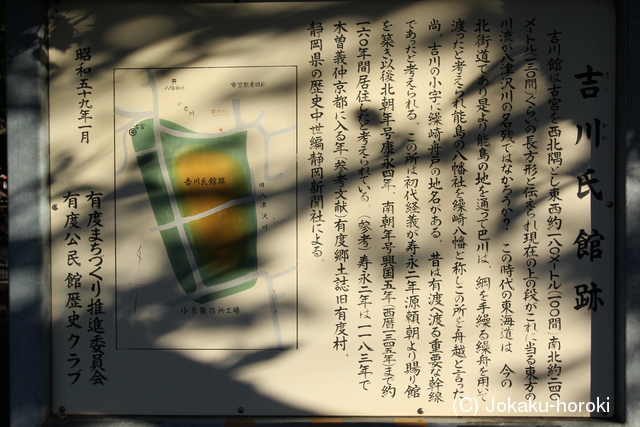 吉川氏館跡
吉川館は古宮を西北隅とし東西約一八〇メートル一〇〇間、南北約二四〇
メートル一三〇間ぐらいの長方形と伝えられ現在の上の段がこれに当る東方の
川流が八津沢川の名残ではなかろうか？ この時代の東海道は、今の
北街道であり是より能島の地を通って巴川は、綱を手繰る繰舟を用いて
渡ったと考えられ能島の八幡社を繰崎八幡と称しこの所を舟越と言った
尚、吉川の小字に繰崎舟戸の地名がある。昔は有渡へ渡る重要な幹線
であったと考えられる。この所は初代経義が寿永二年源頼朝より賜り館
を築き以後北朝年号康永四年、南朝年号興国五年（西暦一三四五年）まで約
一六〇年間居住したと考えられている。（参考）寿永二年は一一八三年で
木曽義仲京都に入る年（参考文献）有度郷土誌旧有度村。
静岡県の歴史中世編静岡新聞社による。
昭和五十九年一月
有度まちづくり推進委員会
有度公民館歴史クラブ
市営動
巴川
古宮
吉川氏館跡
旧八津沢川
小糸製作所工場
(C) Jokaku-horoki